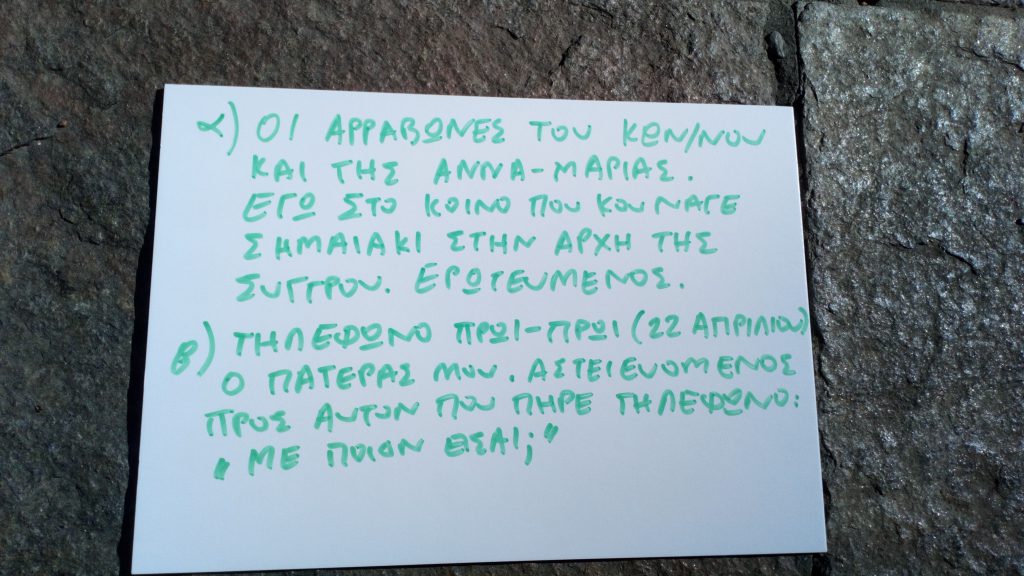 α) ΟΙ ΑΡΡΑΒΩΝΕΣ ΤΟΥ ΚΩΝ/ΝΟΥ
ΚΑΙ ΤΗΣ ΑΝΝΑ-ΜΑΡΙΑΣ.
ΕΓΩ ΣΤΟ ΚΟΙΝΟ ΠΟΥ ΚΟΥΝΑΓΕ
ΣΗΜΑΙΑΚΙ ΣΤΗΝ ΑΡΧΗ ΤΗΣ
ΣΥΓΓΡΟΥ. ΕΡΩΤΕΥΜΕΝΟΣ.
β) ΤΗΛΕΦΩΝΟ ΠΡΩΙ-ΠΡΩΙ (22 ΑΠΡΙΛΙΟΥ)
Ο ΠΑΤΕΡΑΣ ΜΟΥ. ΑΣΤΕΙΕΥΟΜΕΝΟΣ
ΠΡΟΣ ΑΥΤΟΝ ΠΟΥ ΠΗΡΕ ΤΗΛΕΦΩΝΟ:
"ΜΕ ΠΟΙΟΝ ΕΙΣΑΙ;"